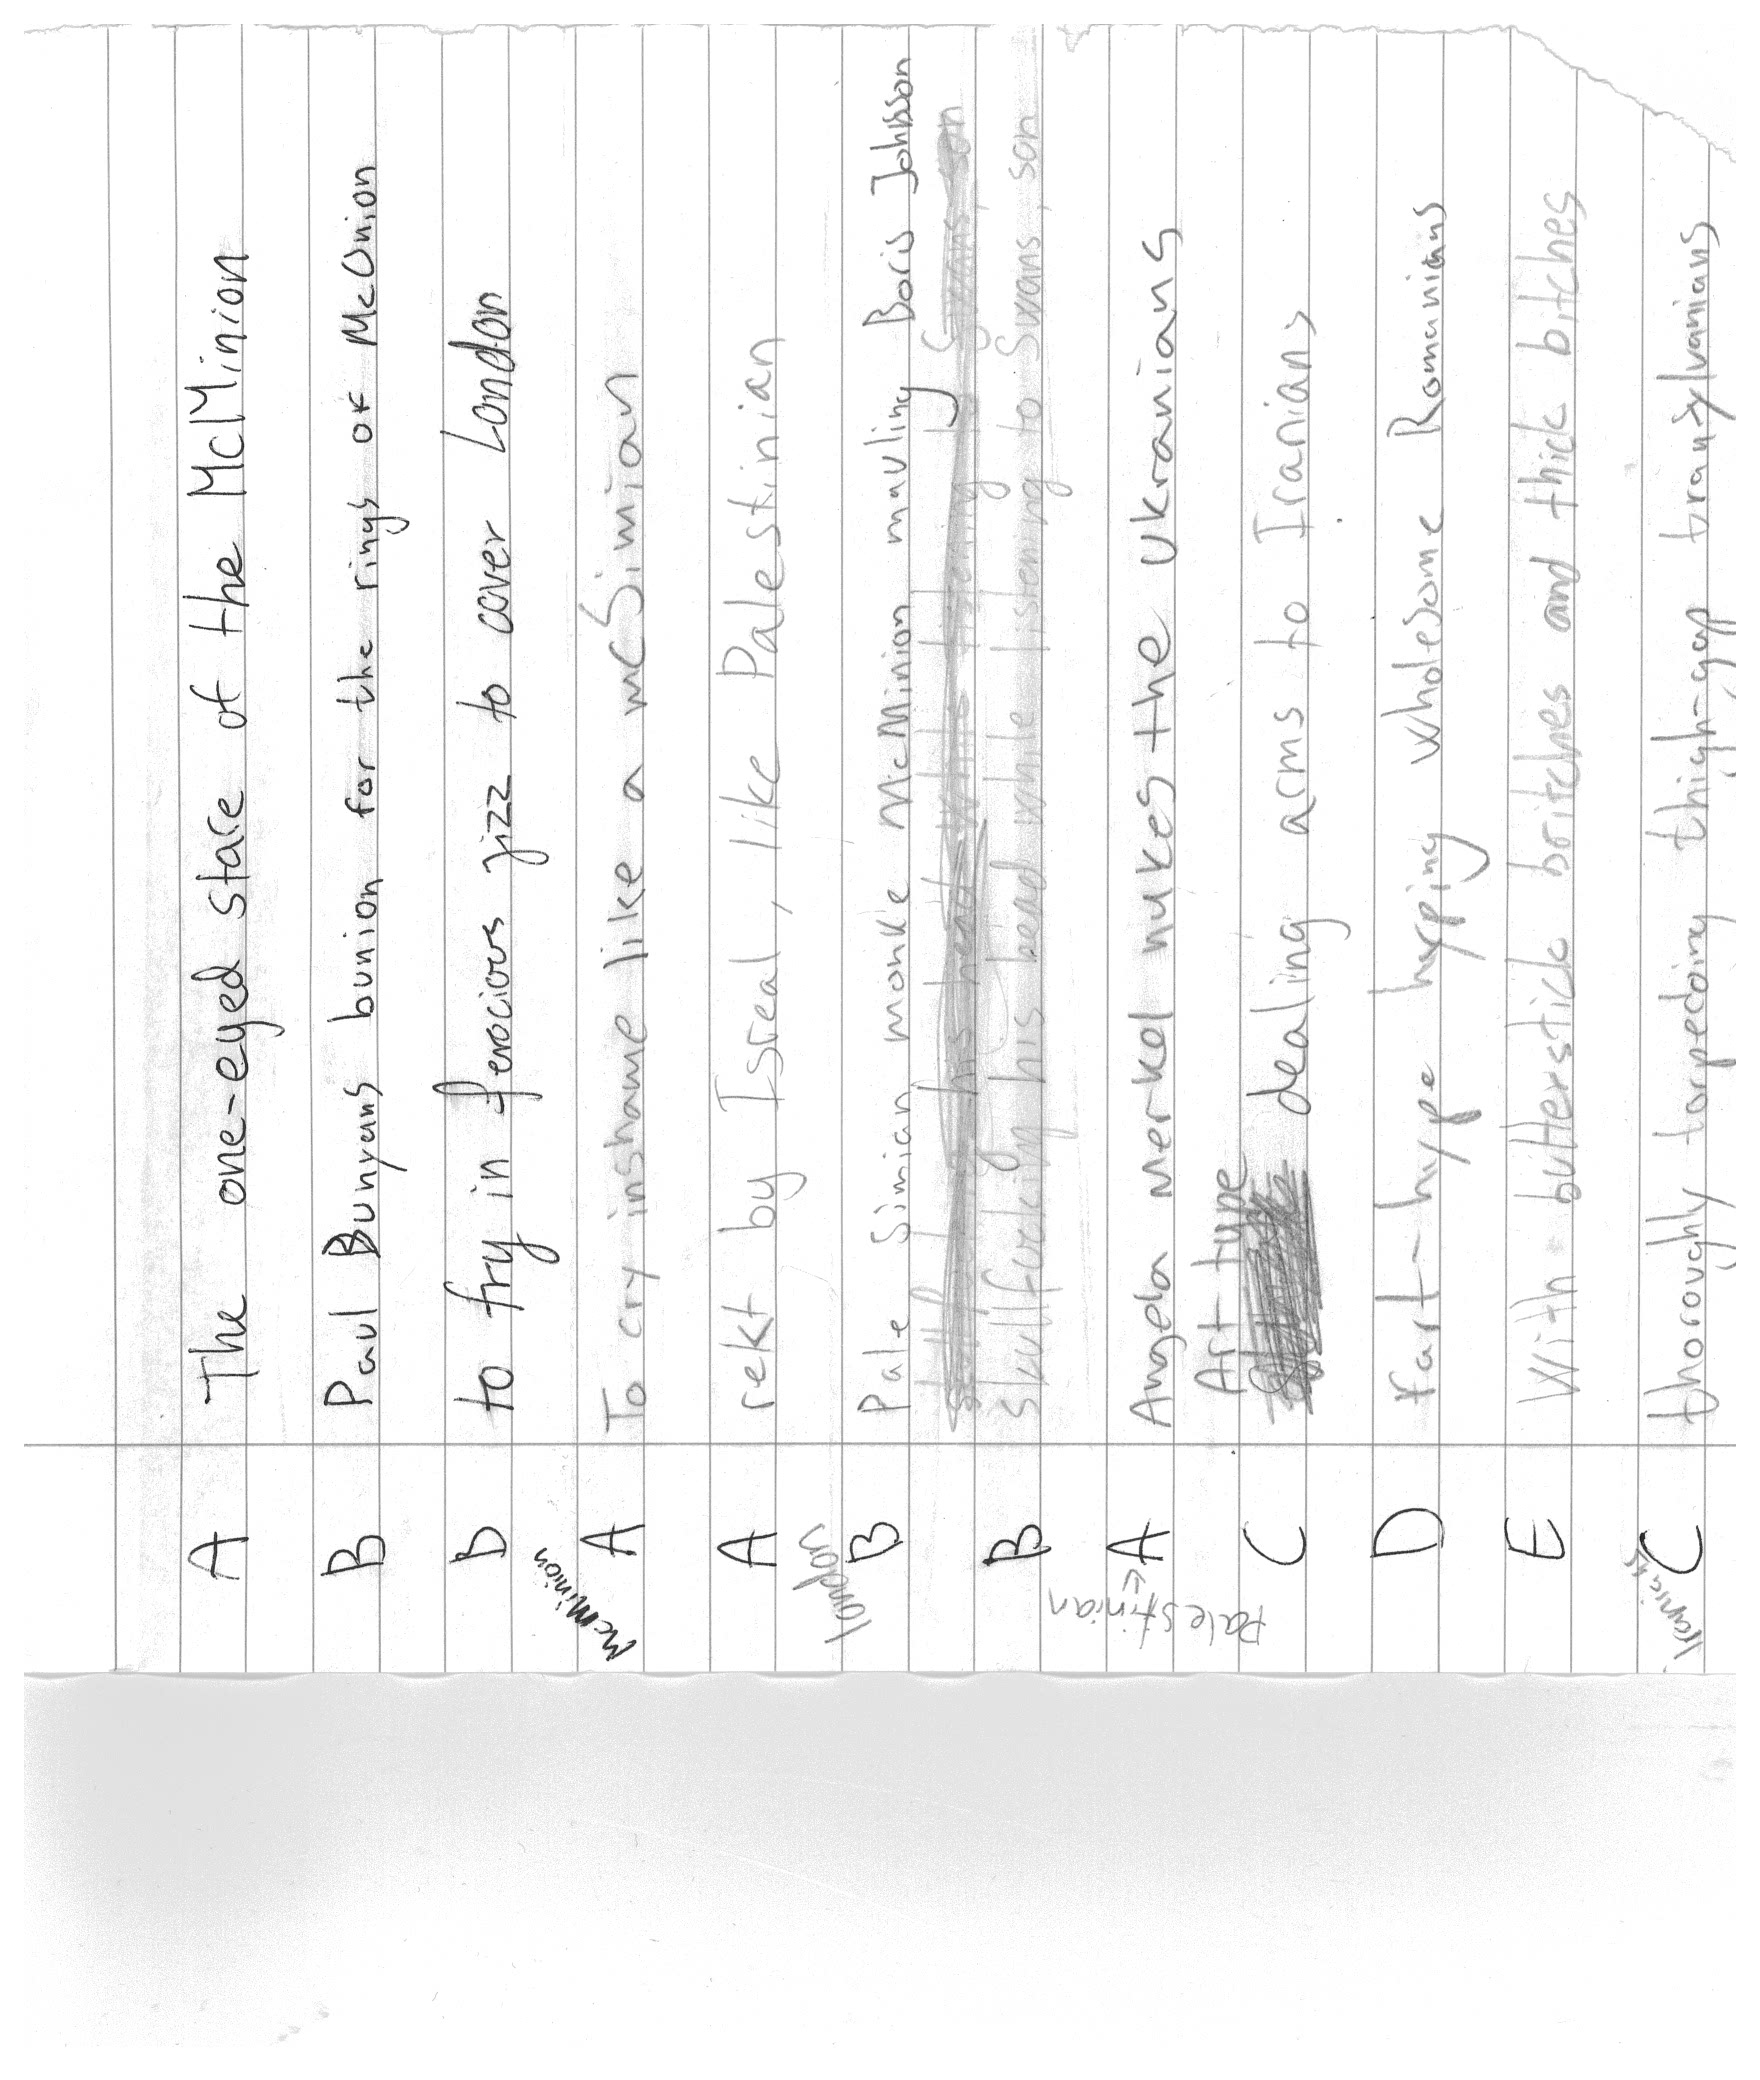 A The one-eyed stare of the McMinion
B Paul Bunyans bunion for the rings of McOnion
B to fry in ferocious jizz to cover London
McMinion
A To cry inshame like a mcSimian
A rekt by Isreal, like Palestinian
london
B Pale Simian monke McMinion mauling Boris Johnson
skullfucking his head while listening to Swans, son
B skullfucking his head while listening to Swans, son
Palestinian
A Angela Merkel nukes the Ukranians
Art type
C dealing arms to Iranians
D Fart-hype hyping wholesome Romanians
E With butterstick britches and thick bitches
Iranians
C thoroughly torpedoing thigh-gap transylvanians